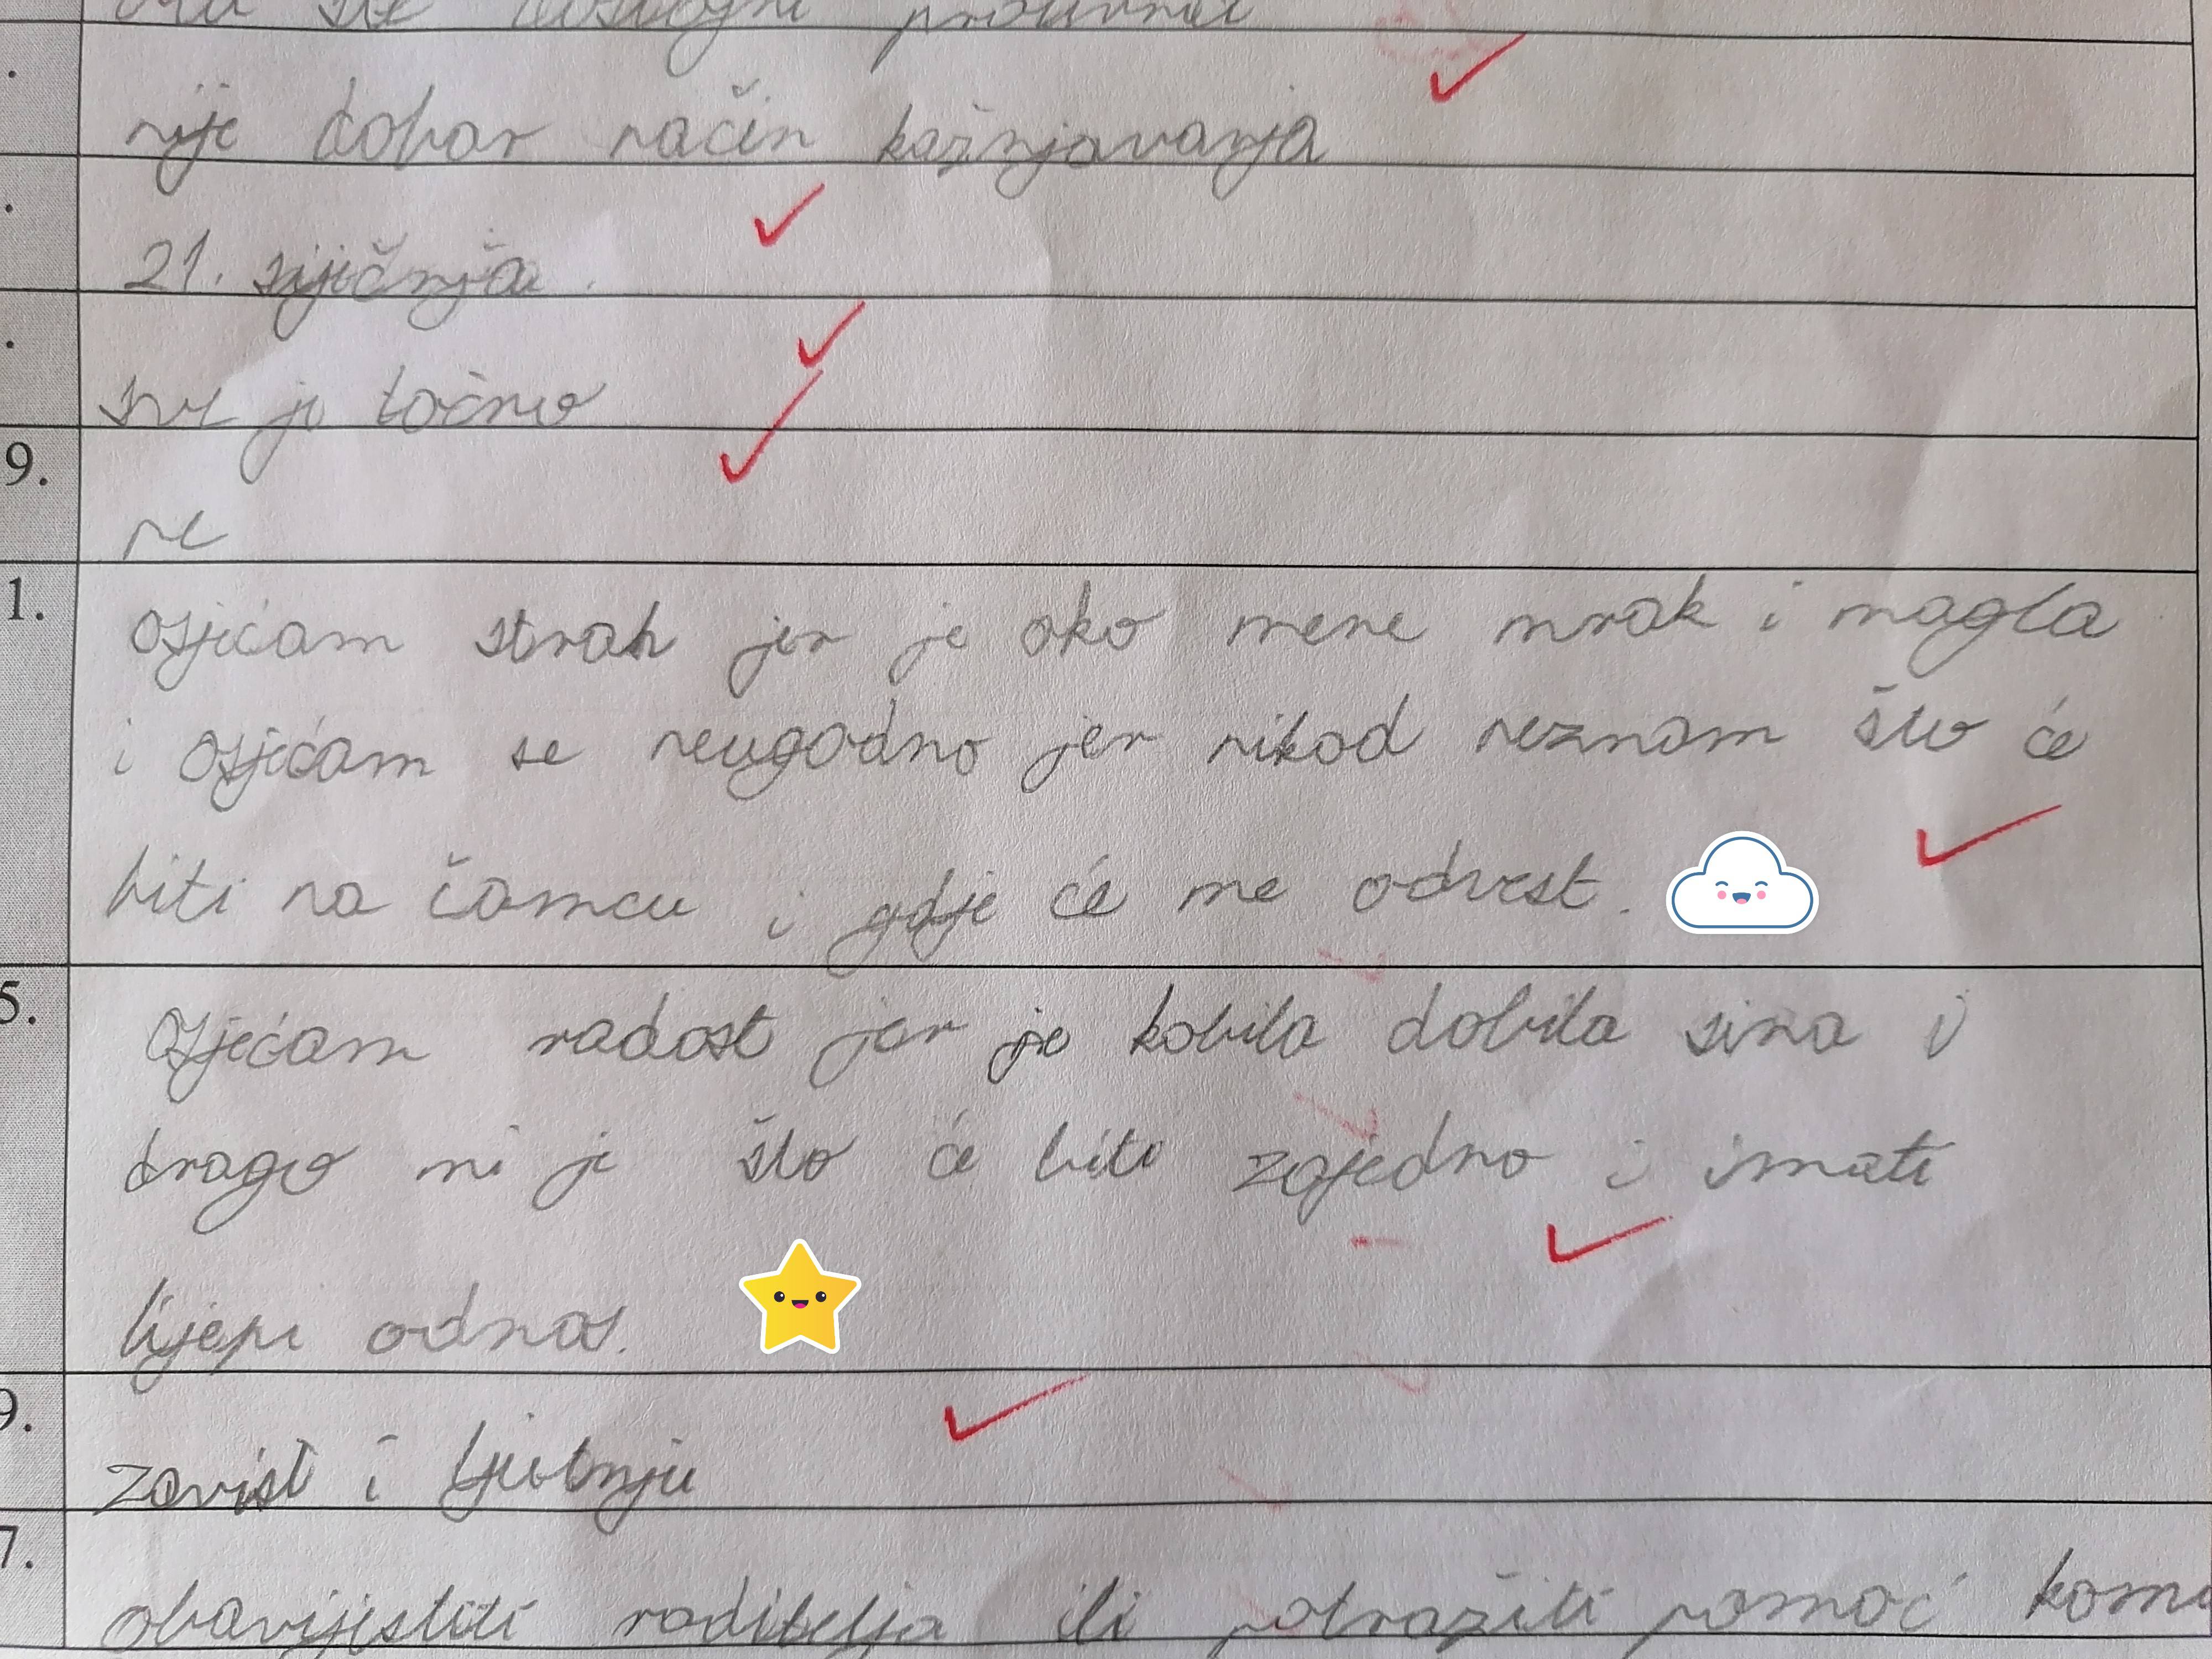 nije dobar način kažnjavanja
21. siječnja.
sve je točno
9.
ne
1.
Osjećam strah jer je oko mene mrak i magla
i osjećam se neugodno jer nikad neznam što će
biti na čamcu i gdje će me odvest.
5.
Osjećam radost jer je kobila dobila sina i
drago mi je što će biti zajedno i imati
lijepi odnos.
9.
zavist i ljutnju
7.
obavijestiti roditelja ili potražiti pomoć